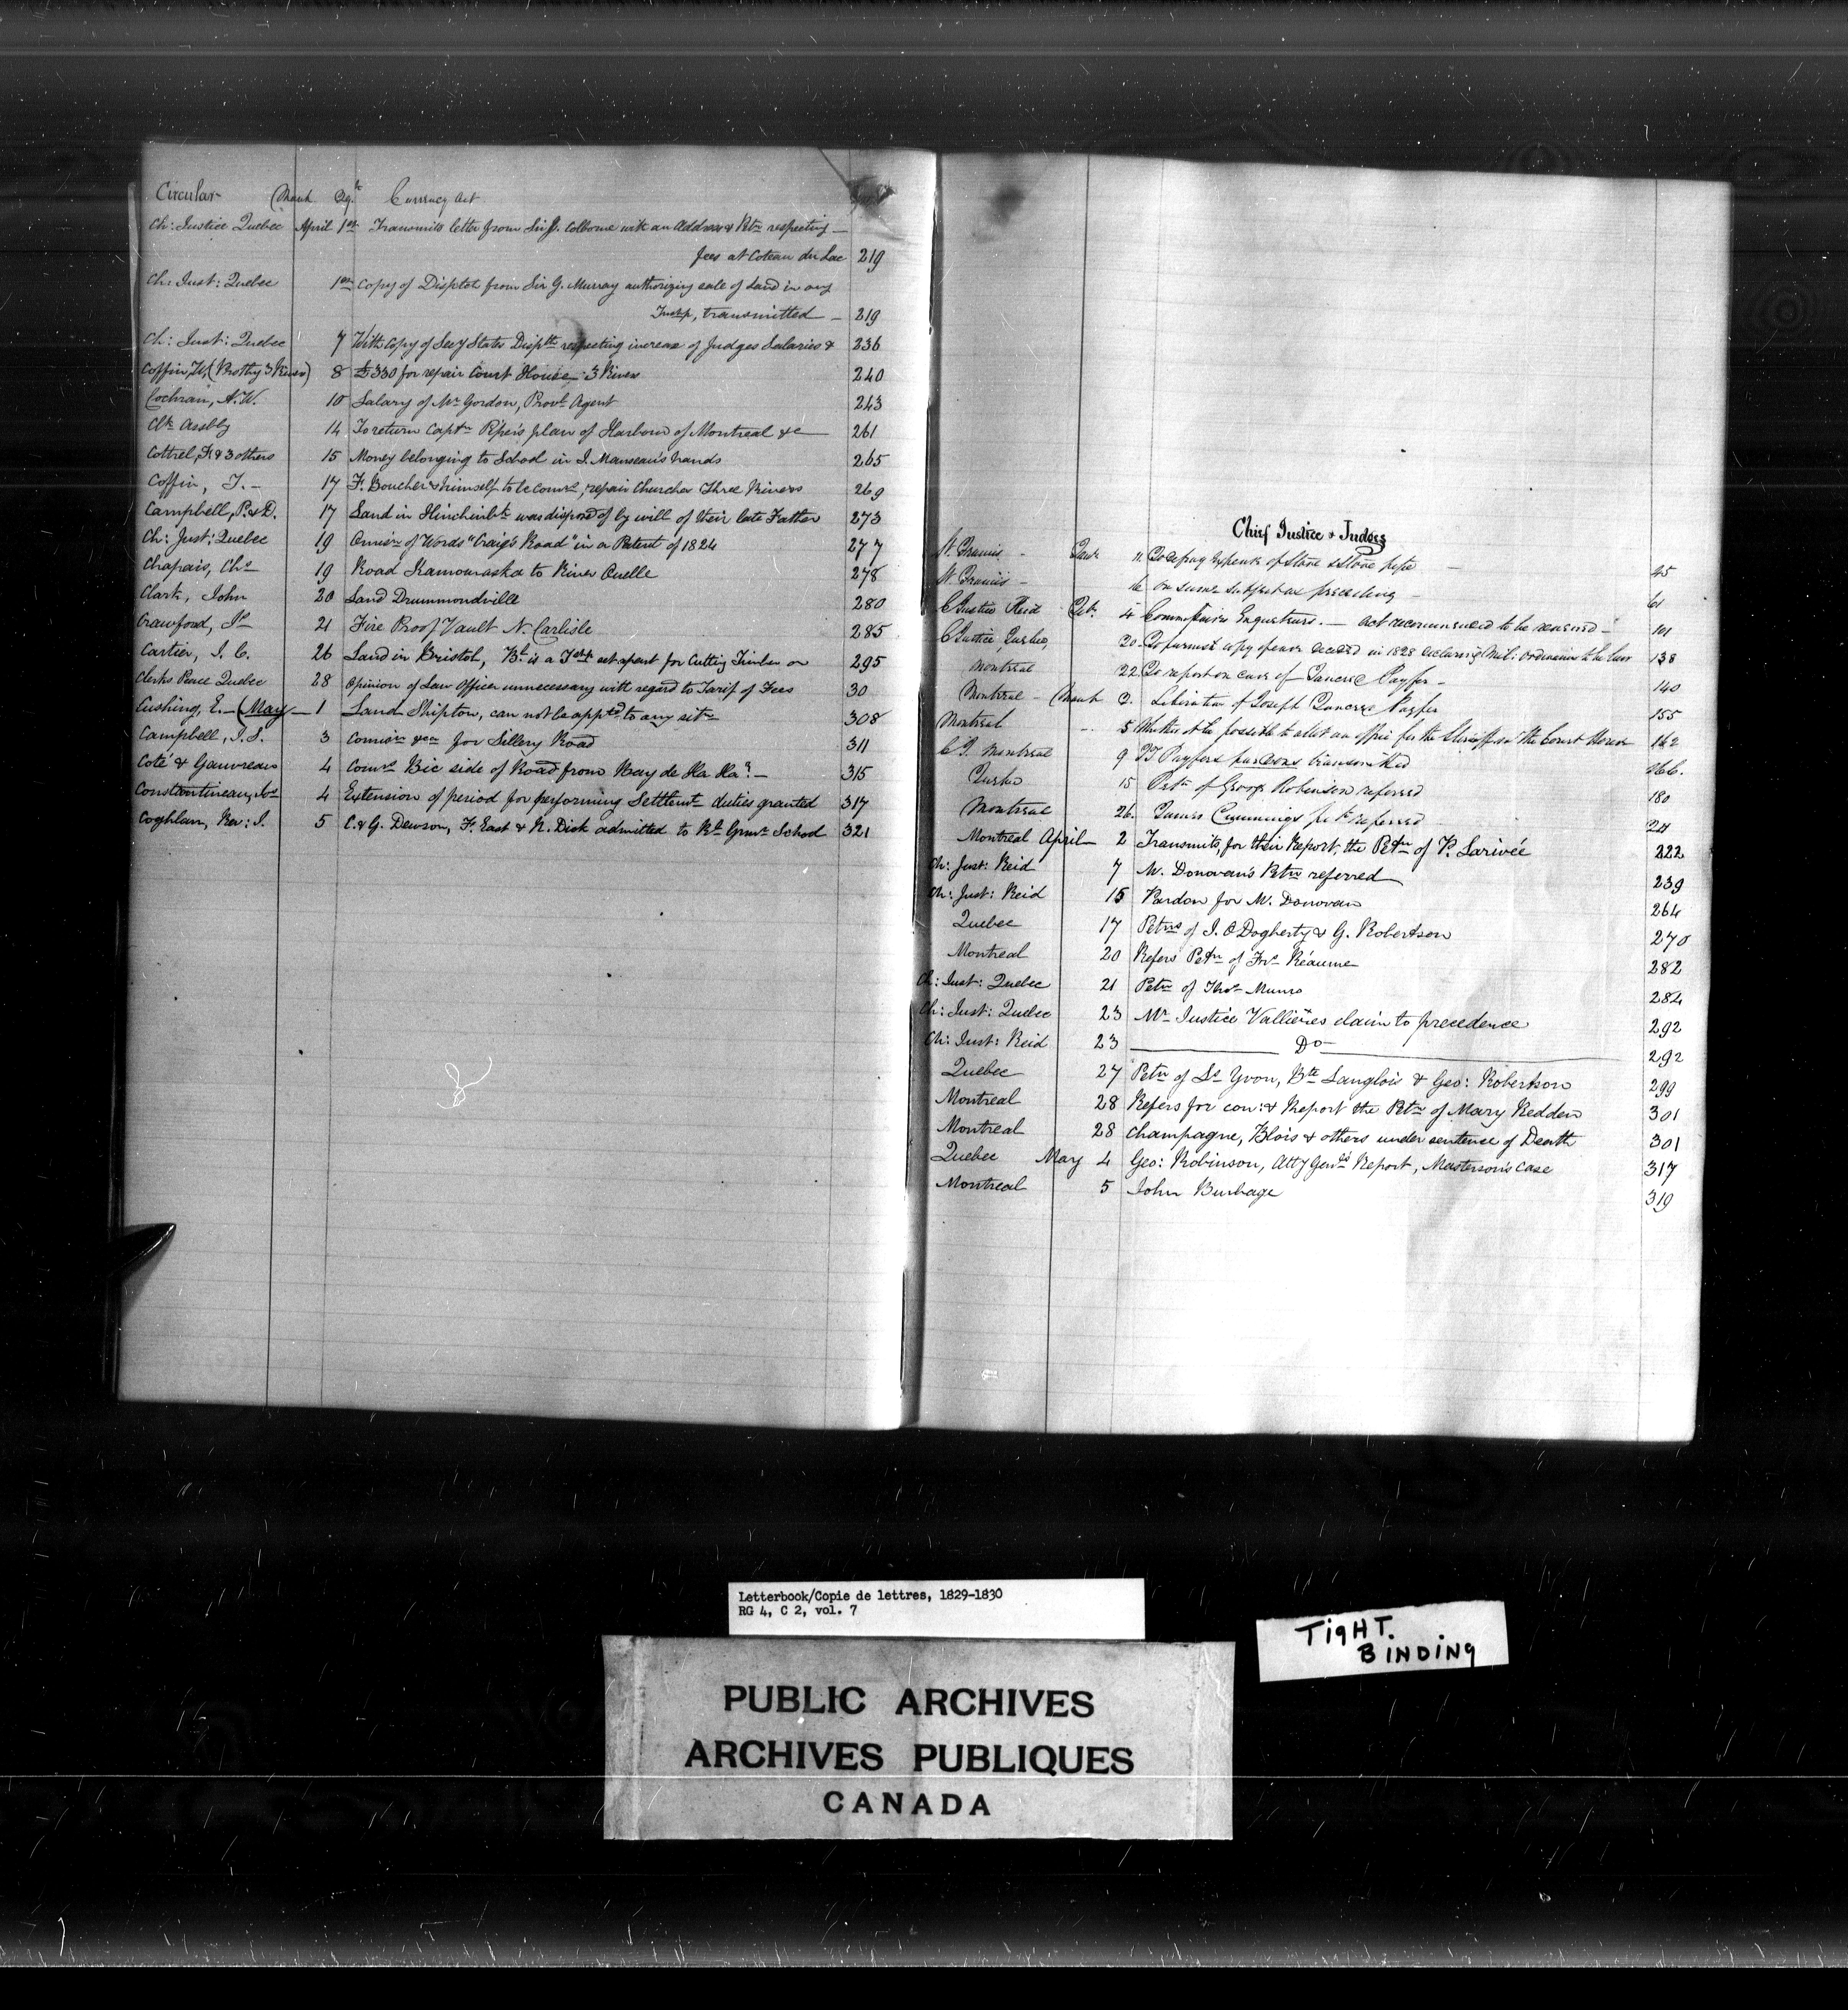 Circular March Currency Act
Ch: Justice Quebec April 1st Transmits letter from Sir J. Colborne with an Address & Petn respecting —
fees at Coteau du Lac 219
Ch: Just: Quebec 1st Copy of Disptch from Sir G. Murray authorizing sale of Land in any
Tnshp, transmitted — 219
Ch: Just: Quebec 7 With copy of Secy States Disptch respecting increase of Judges Salaries & 236
Coffin, W. (Prothy 3 River) 8 £330 for repair Court House, 3 River 240
Cochran, A. W. 10 Salary of Mr Gordon, Provl Agent 243
Clk Assbly 14 To return Captn Piper's plan of Harbour of Montreal &c — 261
Cottrel, F. & 3 others 15 Money belonging to School in I. Manseau's hands 265
Coffin, T. — 17 F. Boucher & himself to be comrs, repair Churches Three Rivers 269
Campbell, P. & D. 17 Land in Hinchinbk was disposed of by will of their late Father 273
Ch: Just: Quebec 19 Omissn of Words "Craig's Road" in a Patent of 1824 277
Chapais, Chs 19 Road Kamouraska to River Ouelle 278
Clark, John 20 Land Drummondville 280
Crawford, Js 21 Fire Proof Vault N. Carlisle 285
Cartier, I. C. 26 Land in Bristol, is a Tshp set apart for Cutting Timber on 295
Clerks Peace Quebec 28 Opinion of Law Officer unnecessary with regard to Tarif of Fees 30
Cushing, E. — May — 1 Land Shipton, can not be appd to any sitn 308
Campbell, I. S. 3 Comissn &ca for Sillery Road 311
Coté & Gauvreau 4 Comrs Bic side of Road from Bay de Ha Ha! — 315
Constantineau, Jos 4 Extension of period for performing Settlemt duties granted 317
Coghlan, Rev: I. 5 C. & G. Dewson, F. East & R. Dick admitted to Rl Grmr School 321
Chief Justice & Judges
St. Francis — Jany 11 To defray expense of Stove & Stove pipe — 45
St. Francis — 16 On same subject as preceding — 61
C Justice Reid Feb. 4 Commissaires Enquêteurs. — Act recommended to be renewed — 101
C Justice, Quebec, 20 To furnish copy of decided in 1828 declaring Mil: Ordinances to be Law 138
Montreal 22 To report on case of Tancrè Payfer — 140
Montreal — March 3. Liberation of Joseph Tancrè Payfer 155
Montreal 5 Whether it be possible to allot an office for the Sheriff in the Court House 162
C J. Montreal 9 Payfers pardons transmitted 166.
Quebec 15 Petn of George Robinson referred 180
Montreal 26. James Cummings petn referred
Montreal April — 2 Transmits, for their Report, the Petn of P. Larivée 222
Ch: Just: Reid 7 M. Donovan's Petn referred 239
Ch: Just: Reid 15 Pardon for M. Donovan 264
Quebec 17 Petns of I. O'Dogherty & G. Robertson 270
Montreal 20 Refers Petn of Frs Réaume 282
Ch: Just: Quebec 21 Petn of Thos Munro 284
Ch: Just: Quebec 23 Mr Justice Vallières claim to precedence 292
Ch: Just: Reid 23 Do 292
Quebec 27 Petn of Ls Yvon, Bte Langlois & Geo: Robertson 299
Montreal 28 Refers for con: & Report the Petn of Mary Redden 301
Montreal 28 Champagne, Blois & others under sentence of Death 301
Quebec May 4 Geo: Robinson, Atty Genls Report, Masterson's case 317
Montreal 5 John Burbage 319
Letterbook/Copie de lettres, 1829-1830
RG 4, C 2, vol. 7
TIGHT.
BINDING
PUBLIC ARCHIVES
ARCHIVES PUBLIQUES
CANADA